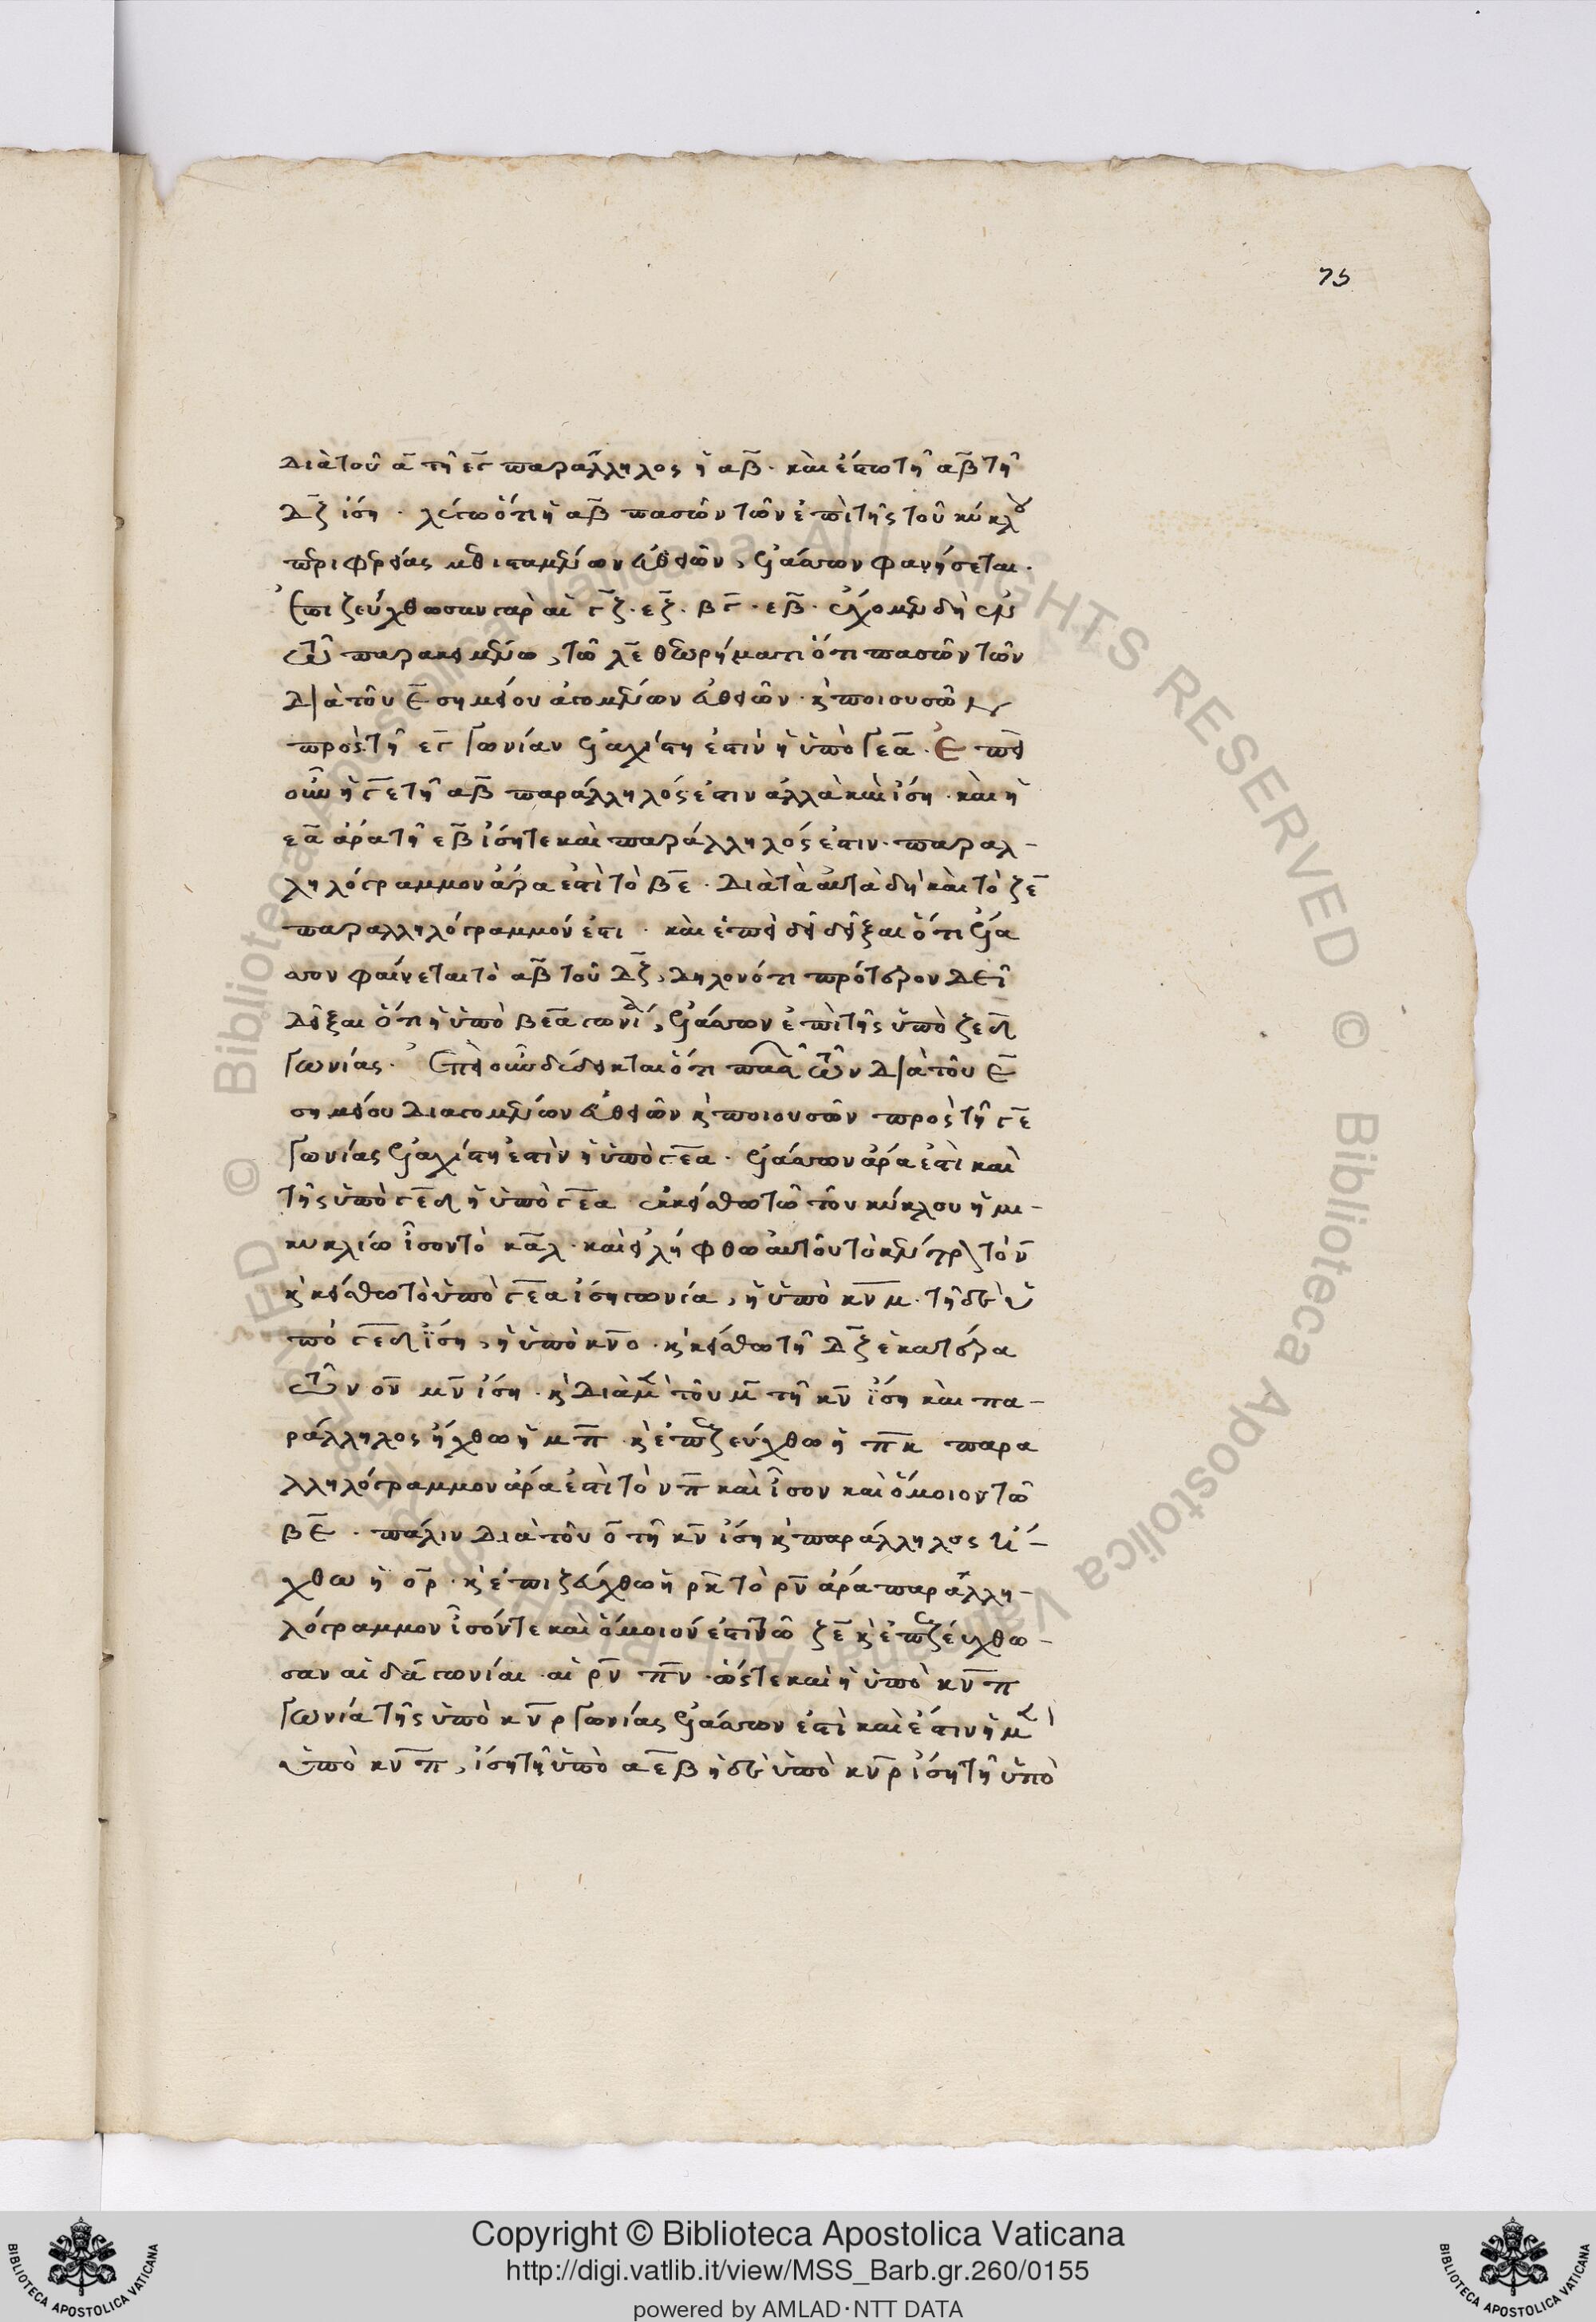 75
διὰ τοῦ α τῆ εγ παράλληλος ἡ αβ. καὶ ἔστω τῆ αβ τῆ
δζ ἴση. λέγω ὅτι ἡ αβ πασῶν τῶν ἐπὶ τῆς τοῦ κύκλου
περιφερείας μεθισταμένων εὐθειῶν, ἔλαττον φανήσεται.
Ἐπιζεύχθωσαν γὰρ αἱ γζ. εζ. βγ. εβ. ἔχομεν δὴ ἐν
τῶ παρακειμένω, τῶ λε θεωρήματι ὅτι πασῶν τῶν
διὰ τοῦ ε σημείου ἀγομένων εὐθειῶν. κ ποιουσῶν
πρὸς τῆ εγ γωνίαν ἐλαχίστη ἐστὶν ἡ ὑπὸ γεα. Ἐπεὶ
οὖν ἡ γε τῆ αβ παράλληλός ἐστιν ἀλλὰ καὶ ἴση. καὶ ἡ
εα ἄρα τῆ εβ ἴση τε καὶ παράλληλός ἐστιν. παραλ-
ληλόγραμμον ἄρα ἐστὶ τὸ βε. διὰ τὰ αὐτὰ δὴ καὶ τὸ ζε
παραλληλόγραμμόν ἐστι. καὶ ἐπεὶ δεῖ δεῖξαι ὅτι ἔλα
ττον φαίνεται τὸ αβ τοῦ δζ, δηλονότι πρότερον δεῖ
δεῖξαι ὅτι ἡ ὑπὸ βεα γωνία, ἔλαττον ἐπὶ τῆς ὑπὸ ζεδ
γωνίας. Ἐπεὶ οὖν δέδεικται ὅτι πασῶν τῶν διὰ τοῦ ε
σημείου διαγομένων εὐθειῶν κ ποιουσῶν πρὸς τῆ γε
γωνίας ἐλαχίστη ἐστὶν ἡ ὑπὸ γεα. ἔλαττον ἄρα ἐστὶ καὶ
τῆς ὑπὸ γεδ ἡ ὑπὸ γεα ἐκκείσθω τῶ τοῦ κύκλου ἡμι-
κυκλίω ἴσον τὸ καλ. καὶ εἰλήφθω αὐτοῦ τὸ κέντρον τὸ ν
κ κείσθω τὸ ὑπὸ γεα ἴση γωνία, ἡ ὑπὸ κνμ. τῆ δὲ ὑ
πὸ γεδ ἴση, ἡ ὑπὸ κνο. κ κείσθω τῆ δζ ἑκατέρα
τῶν ον μν ἴση. κ διὰ μὲν τοῦ μ τῆ κν ἴση καὶ πα-
ράλληλος ἤχθω ἡ μπ κ ἐπιζεύχθω ἡ πκ παρα
λληλόγραμμον ἄρα ἐστὶ τὸ νπ καὶ ἴσον καὶ ὅμοιον τῶ
βε. πάλιν διὰ τοῦ ο τῆ κν ἴση κ παράλληλος ἤ-
χθω ἡ ορ. κ ἐπιζεύχθω ἡ ρκ τὸ ρν ἄρα παραλλη-
λόγραμμον ἴσόν τε καὶ ὅμοιόν ἐστι τῶ ζε κ ἐπιζεύχθω-
σαν αἱ δια γωνίαι. αἱ ρν πν. ὥστε καὶ ἡ ὑπὸ κνπ
γωνία τῆς ὑπὸ κνρ γωνίας ἔλαττον ἐστὶ καὶ ἔστιν ἡ μὲν
ὑπὸ κνπ, ἴση τῆ ὑπὸ αεβ ἡ δὲ ὑπὸ κνρ ἴση τῆ ὑπὸ
Copyright © Biblioteca Apostolica Vaticana
http://digi.vatlib.it/view/MSS_Barb.gr.260/0155
powered by AMLAD·NTT DATA